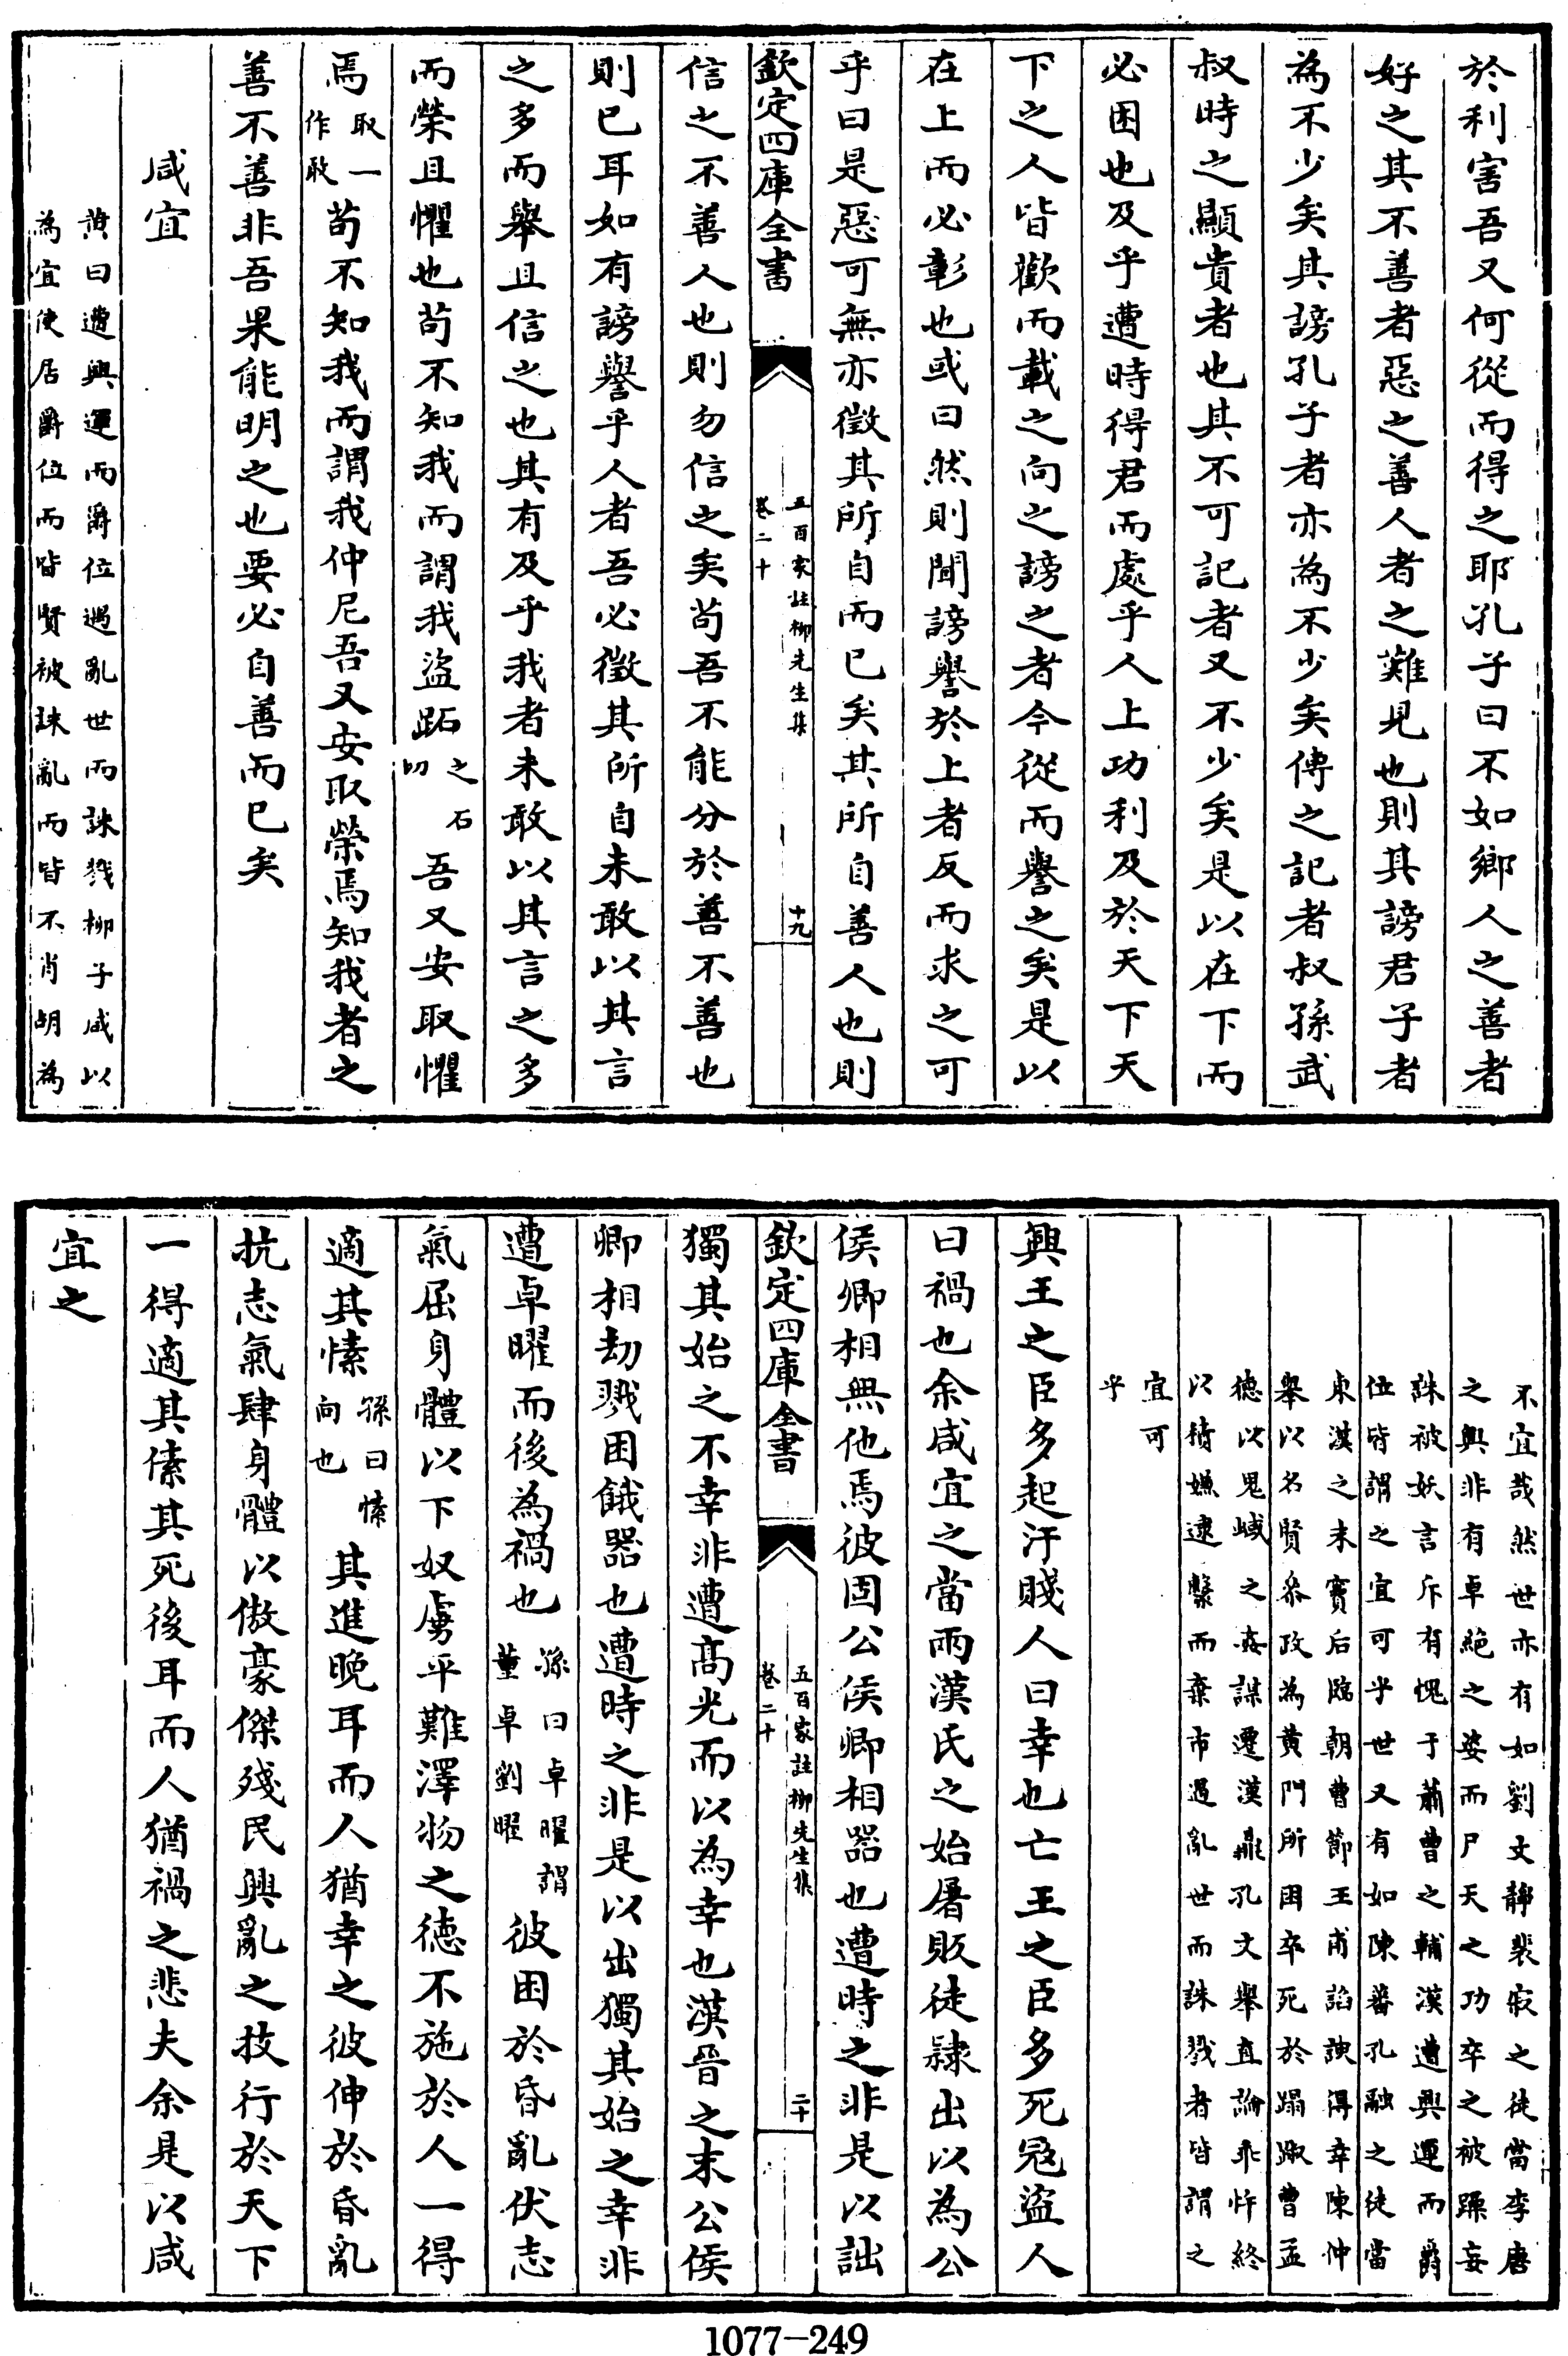 於利害吾又何從而得之耶孔子曰不如鄉人之善者
好之其不善者惡之善人者之難見也則其謗君子者
為不少矣其謗孔子者亦為不少矣傳之記者叔孫武
叔時之顯貴者也其不可記者又不少矣是以在下而
必困也及乎遭時得君而處乎人上功利及於天下天
下之人皆歡而載之向之謗之者今從而譽之矣是以
在上而必彰也或曰然則聞謗譽於上者反而求之可
乎曰是惡可無亦徵其所自而已矣其所自善人也則
欽定四庫全書
五百家註柳先生集
卷二十
十九
信之不善人也則勿信之矣苟吾不能分於善不善也
則已耳如有謗譽乎人者吾必徵其所自未敢以其言
之多而舉且信之也其有及乎我者未敢以其言之多
而榮且懼也苟不知我而謂我盜跖之石切吾又安取懼
焉取一作敢苟不知我而謂我仲尼吾又安取榮焉知我者之
善不善非吾果能明之也要必自善而已矣
咸宜
黃曰遭興運而爵位遇亂世而誅戮柳子咸以
為宜使居爵位而皆賢被誅亂而皆不肖胡為
不宜哉然世亦有如劉文靜裴寂之徒當李唐
之興非有卓絶之姿而尸天之功卒之被躁妄
誅被妖言斥有愧于蕭曹之輔漢遭興運而爵
位皆謂之宜可乎世又有如陳蕃孔融之徒當
東漢之末竇后臨朝曹節王甫諂諛得幸陳仲
舉以名賢叅政為黄門所困卒死於蹋踧曹孟
德以鬼蜮之姦謀遷漢鼎孔文舉直論乖忤終
以積嫌逮繫而棄市遇亂世而誅戮者皆謂之
宜可
乎
興王之臣多起汙賤人曰幸也亡王之臣多死寇盜人
曰禍也余咸宜之當兩漢氏之始屠販徒隸出以為公
侯卿相無他焉彼固公侯卿相器也遭時之非是以詘
欽定四庫全書
五百家註柳先生集
卷二十
二十
獨其始之不幸非遭髙光而以為幸也漢晉之末公侯
卿相劫戮困餓器也遭時之非是以出獨其始之幸非
遭卓曜而後為禍也孫曰卓曜謂董卓劉曜彼困於昏亂伏志
氣屈身體以下奴虜平難澤物之徳不施於人一得
適其愫孫曰愫向也其進晚耳而人猶幸之彼伸於昏亂
抗志氣肆身體以傲豪傑殘民興亂之技行於天下
一得適其愫其死後耳而人猶禍之悲夫余是以咸
宜之
1077-249